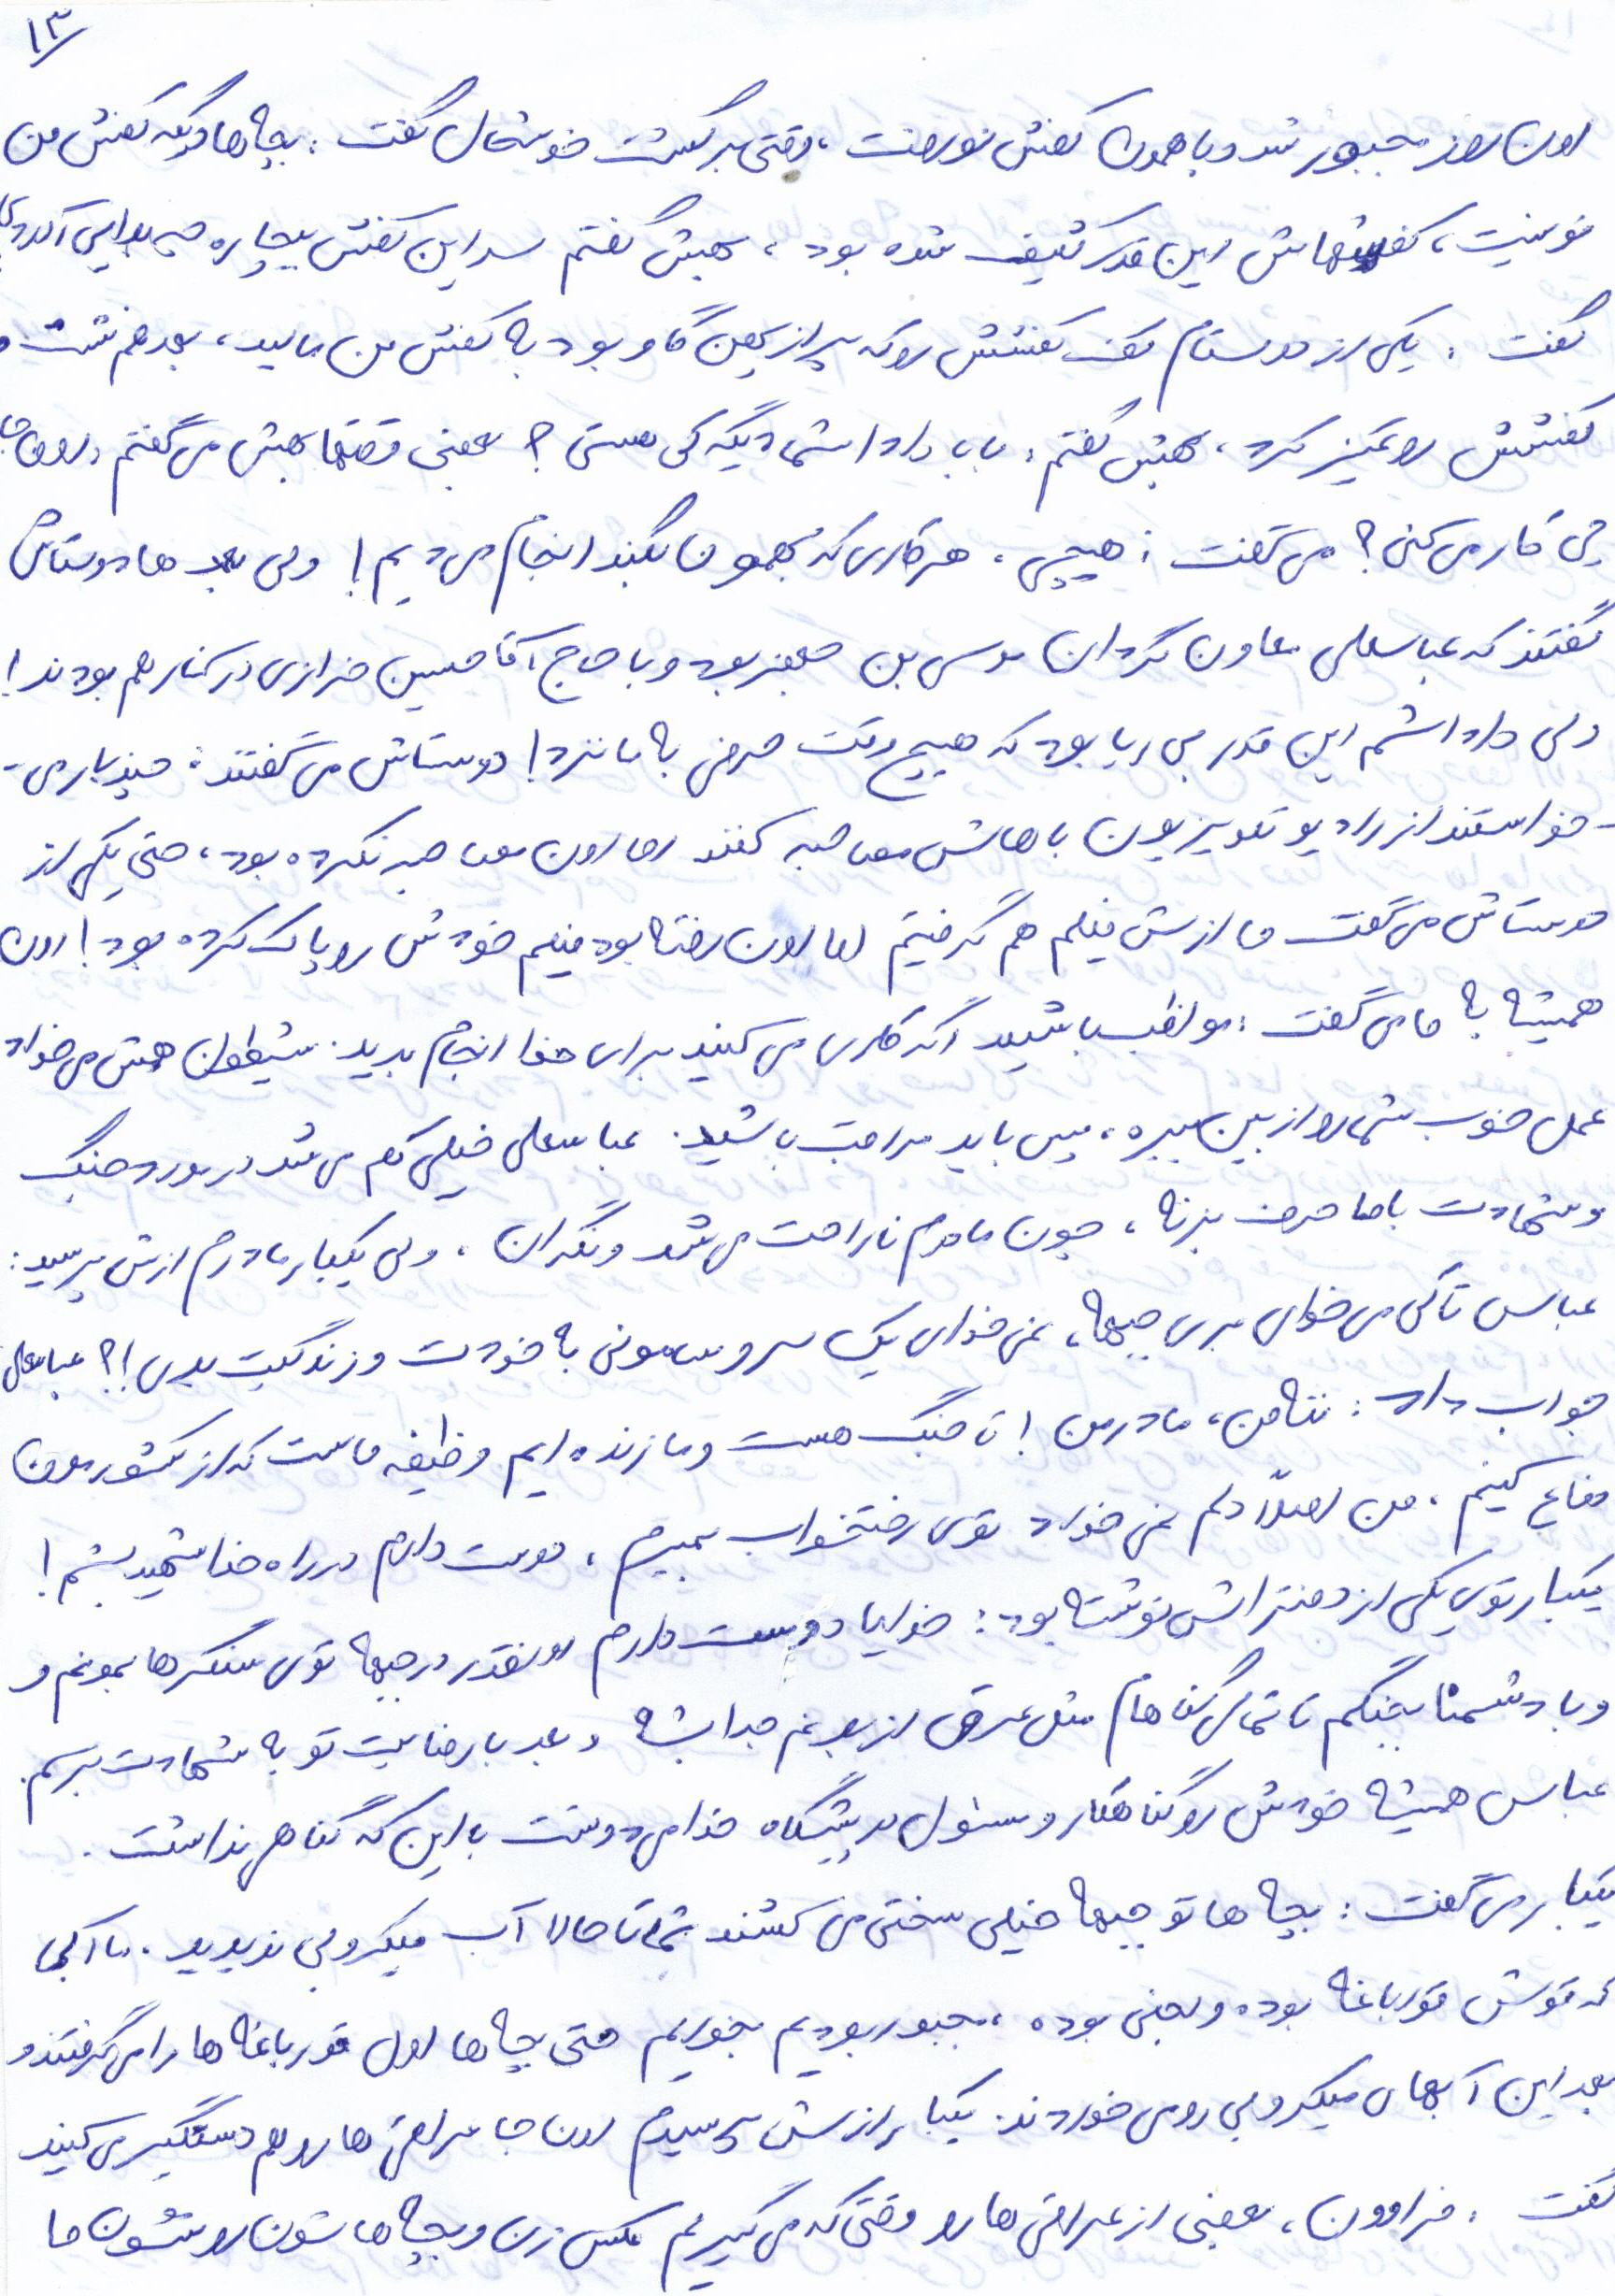 ۱۳
اون روز مجبور شد و با همون کفش نو رفت، وقتی برگشت خوشحال گفت: بچه ها دیگه کفش من
نو نیست، کفشهاش این قدر کثیف شده بود، بهش گفتم سر این کفش بیچاره چه بلایی آوردی
گفت: یکی از دوستام کف کفشش رو که پر از پهن گاو بود به کفش من مالید، بعد هم نشست و
کفشش رو تمیز کرد، بهش گفتم: بابا داداش شما دیگه کی هستی؟ بعضی وقتها بهش می گفتم: اون جا
چی کار می کنی؟ می گفت: هیچی، هر کاری که بهمون بگند انجام می دیم! ولی بعد ها دوستاش
گفتند که عباسعلی معاون گردان موسی بن جعفر بود و با حاج آقا حسین خرازی در کنار هم بودند!
ولی داداشم این قدر بی ریا بود که هیچ وقت حرفی به ما نزد! دوستاش می گفتند: چند بار می-
-خواستند از رادیو تلویزیون باهاش مصاحبه کنند اما اون مصاحبه نکرده بود، حتی یکی از
دوستاش می گفت ما ازش فیلم هم گرفتیم اما اون رفته بود فیلم خودش رو پاک کرده بود! اون
همیشه به ما می گفت: مواظب باشید اگه کاری می کنید برای خدا انجام بدید. شیطون همش می خواد
عمل خوب شما رو از بین ببره، پس باید مراقب باشید. عباسعلی خیلی کم می شد در مورد جنگ
و شهادت با ما حرف بزنه، چون مادرم ناراحت می شد و نگران، ولی یکبار مادرم ازش پرسید:
عباس تا کی می خوای بری جبهه، نمی خوای یک سر و سامونی به خودت و زندگیت بدی!؟ عباسعلی
جواب داد: ننه من، مادر من! تا جنگ هست و ما زنده ایم وظیفه ماست که از کشورمون
دفاع کنیم، من اصلاً دلم نمی خواد توی رختخواب بمیرم، دوست دارم در راه خدا شهید بشم!
یکبار توی یکی از دفتراش نوشته بود: خدایا دوست دارم اونقدر در جبهه توی سنگرها بمونم و
و با دشمنا بجنگم تا تمامی گناهام مثل عرق از بدنم جدا بشه و بعد با رضایت تو به شهادت برسم.
عباس همیشه خودش رو گناهکار و مسئول در پیشگاه خدا می دونست با این که گناهی نداشت.
یکبار می گفت: بچه ها تو جبهه خیلی سختی می کشند شما تا حالا آب میکروبی ندیدید. ما آبی
که توش قورباغه بوده و لجنی بوده، مجبور بودیم بخوریم حتی بچه ها اول قورباغه ها را می گرفتند و
بعد این آبهای میکروبی رو می خوردند. یکبار ازش پرسیدم اون جا عراقی ها رو هم دستگیر می کنید
گفت: فراوون، بعضی از عراقی ها رو وقتی که می گیریم عکس زن و بچه هاشون رو نشون ما